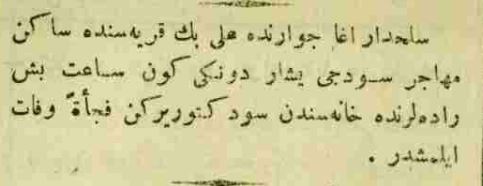 سلحدار اغا جوارنده علی بك قریه‌سنده ساكن
مهاجر سودجی یشار دونكی كون ساعت بش
راده‌لرنده خانه‌سندن سود كتوریركن فجأةً وفات
ایلمشدر .